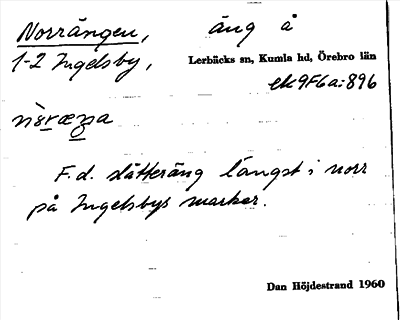 Norrängen, äng å
1-2 Ingelsby, Lerbäcks sn, Kumla hd, Örebro län
ek 9F6a:896
F.d. slåtteräng längst i norr
på Ingelsbys marker.
Dan Höjdestrand 1960